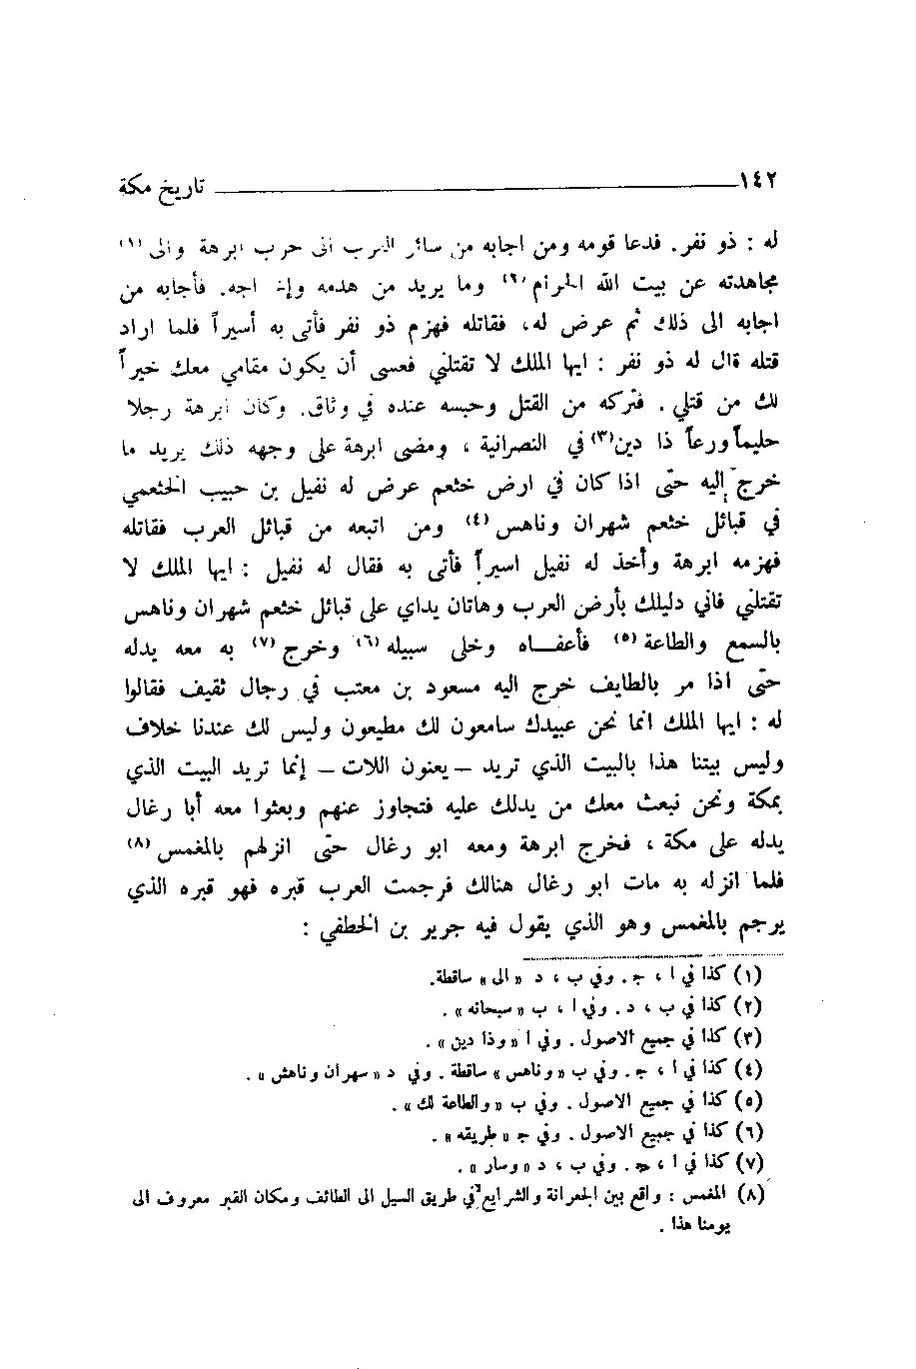 ١٤٢ تاريخ مكة
له : ذو نفر. فدعا قومه ومن اجابه من سائر العرب الى حرب ابرهة والى (١)
مجاهدته عن بيت الله الحرام (٢) وما يريد من هدمه وإخراجه. فأجابه من
اجابه الى ذلك ثم عرض له، فقاتله فهزم ذو نفر فأتى به أسيراً فلما اراد
قتله قال له ذو نفر : ايها الملك لا تقتلني فعسى أن يكون مقامي معك خيراً
لك من قتلي . فتركه من القتل وحبسه عنده في وثاق. وكان ابرهة رجلا
حليماً ورعاً ذا دين (٣) في النصرانية ، ومضى ابرهة على وجهه ذلك يريد ما
خرج إليه حتى اذا كان في ارض خثعم عرض له نفيل بن حبيب الخثعمي
في قبائل خثعم شهران وناهس (٤) ومن اتبعه من قبائل العرب فقاتله
فهزمه ابرهة وأخذ له نفيل اسيراً فأتى به فقال له نفيل : ايها الملك لا
تقتلني فاني دليلك بأرض العرب وهاتان يداي على قبائل خثعم شهران وناهس
بالسمع والطاعة (٥) فأعفـــاه وخلى سبيله (٦) وخرج (٧) به معه يدله
حتى اذا مر بالطايف خرج اليه مسعود بن معتب في رجال ثقيف فقالوا
له : ايها الملك انما نحن عبيدك سامعون لك مطيعون وليس لك عندنا خلاف
وليس بيتنا هذا بالبيت الذي تريد – يعنون اللات – إنما تريد البيت الذي
بمكة ونحن نبعث معك من يدلك عليه فتجاوز عنهم وبعثوا معه أبا رغال
يدله على مكة ، فخرج ابرهة ومعه ابو رغال حتى انزلهم بالمغمس (٨)
فلما انزله به مات ابو رغال هنالك فرجمت العرب قبره فهو قبره الذي
يرجم بالمغمس وهو الذي يقول فيه جرير بن الخطفي :
(١) كذا في ا ، ج. وفي ب ، د « الى » ساقطة.
(٢) كذا في ب ، د . وفي ا ، ب « سبحانه » .
(٣) كذا في جميع الاصول . وفي ا « وذا دين » .
(٤) كذا في ا ، ج. وفي ب « وناهس » ساقطة . وفي د « سهران وناهش » .
(٥) كذا في جميع الاصول . وفي ب « والطاعة لك » .
(٦) كذا في جميع الاصول . وفي ج « طريقه » .
(٧) كذا في ا ، ج. وفي ب ، د « وسار » .
(٨) المغمس : واقع بين الجعرانة والشرايع في طريق السيل الى الطائف ومكان القبر معروف الى
يومنا هذا .